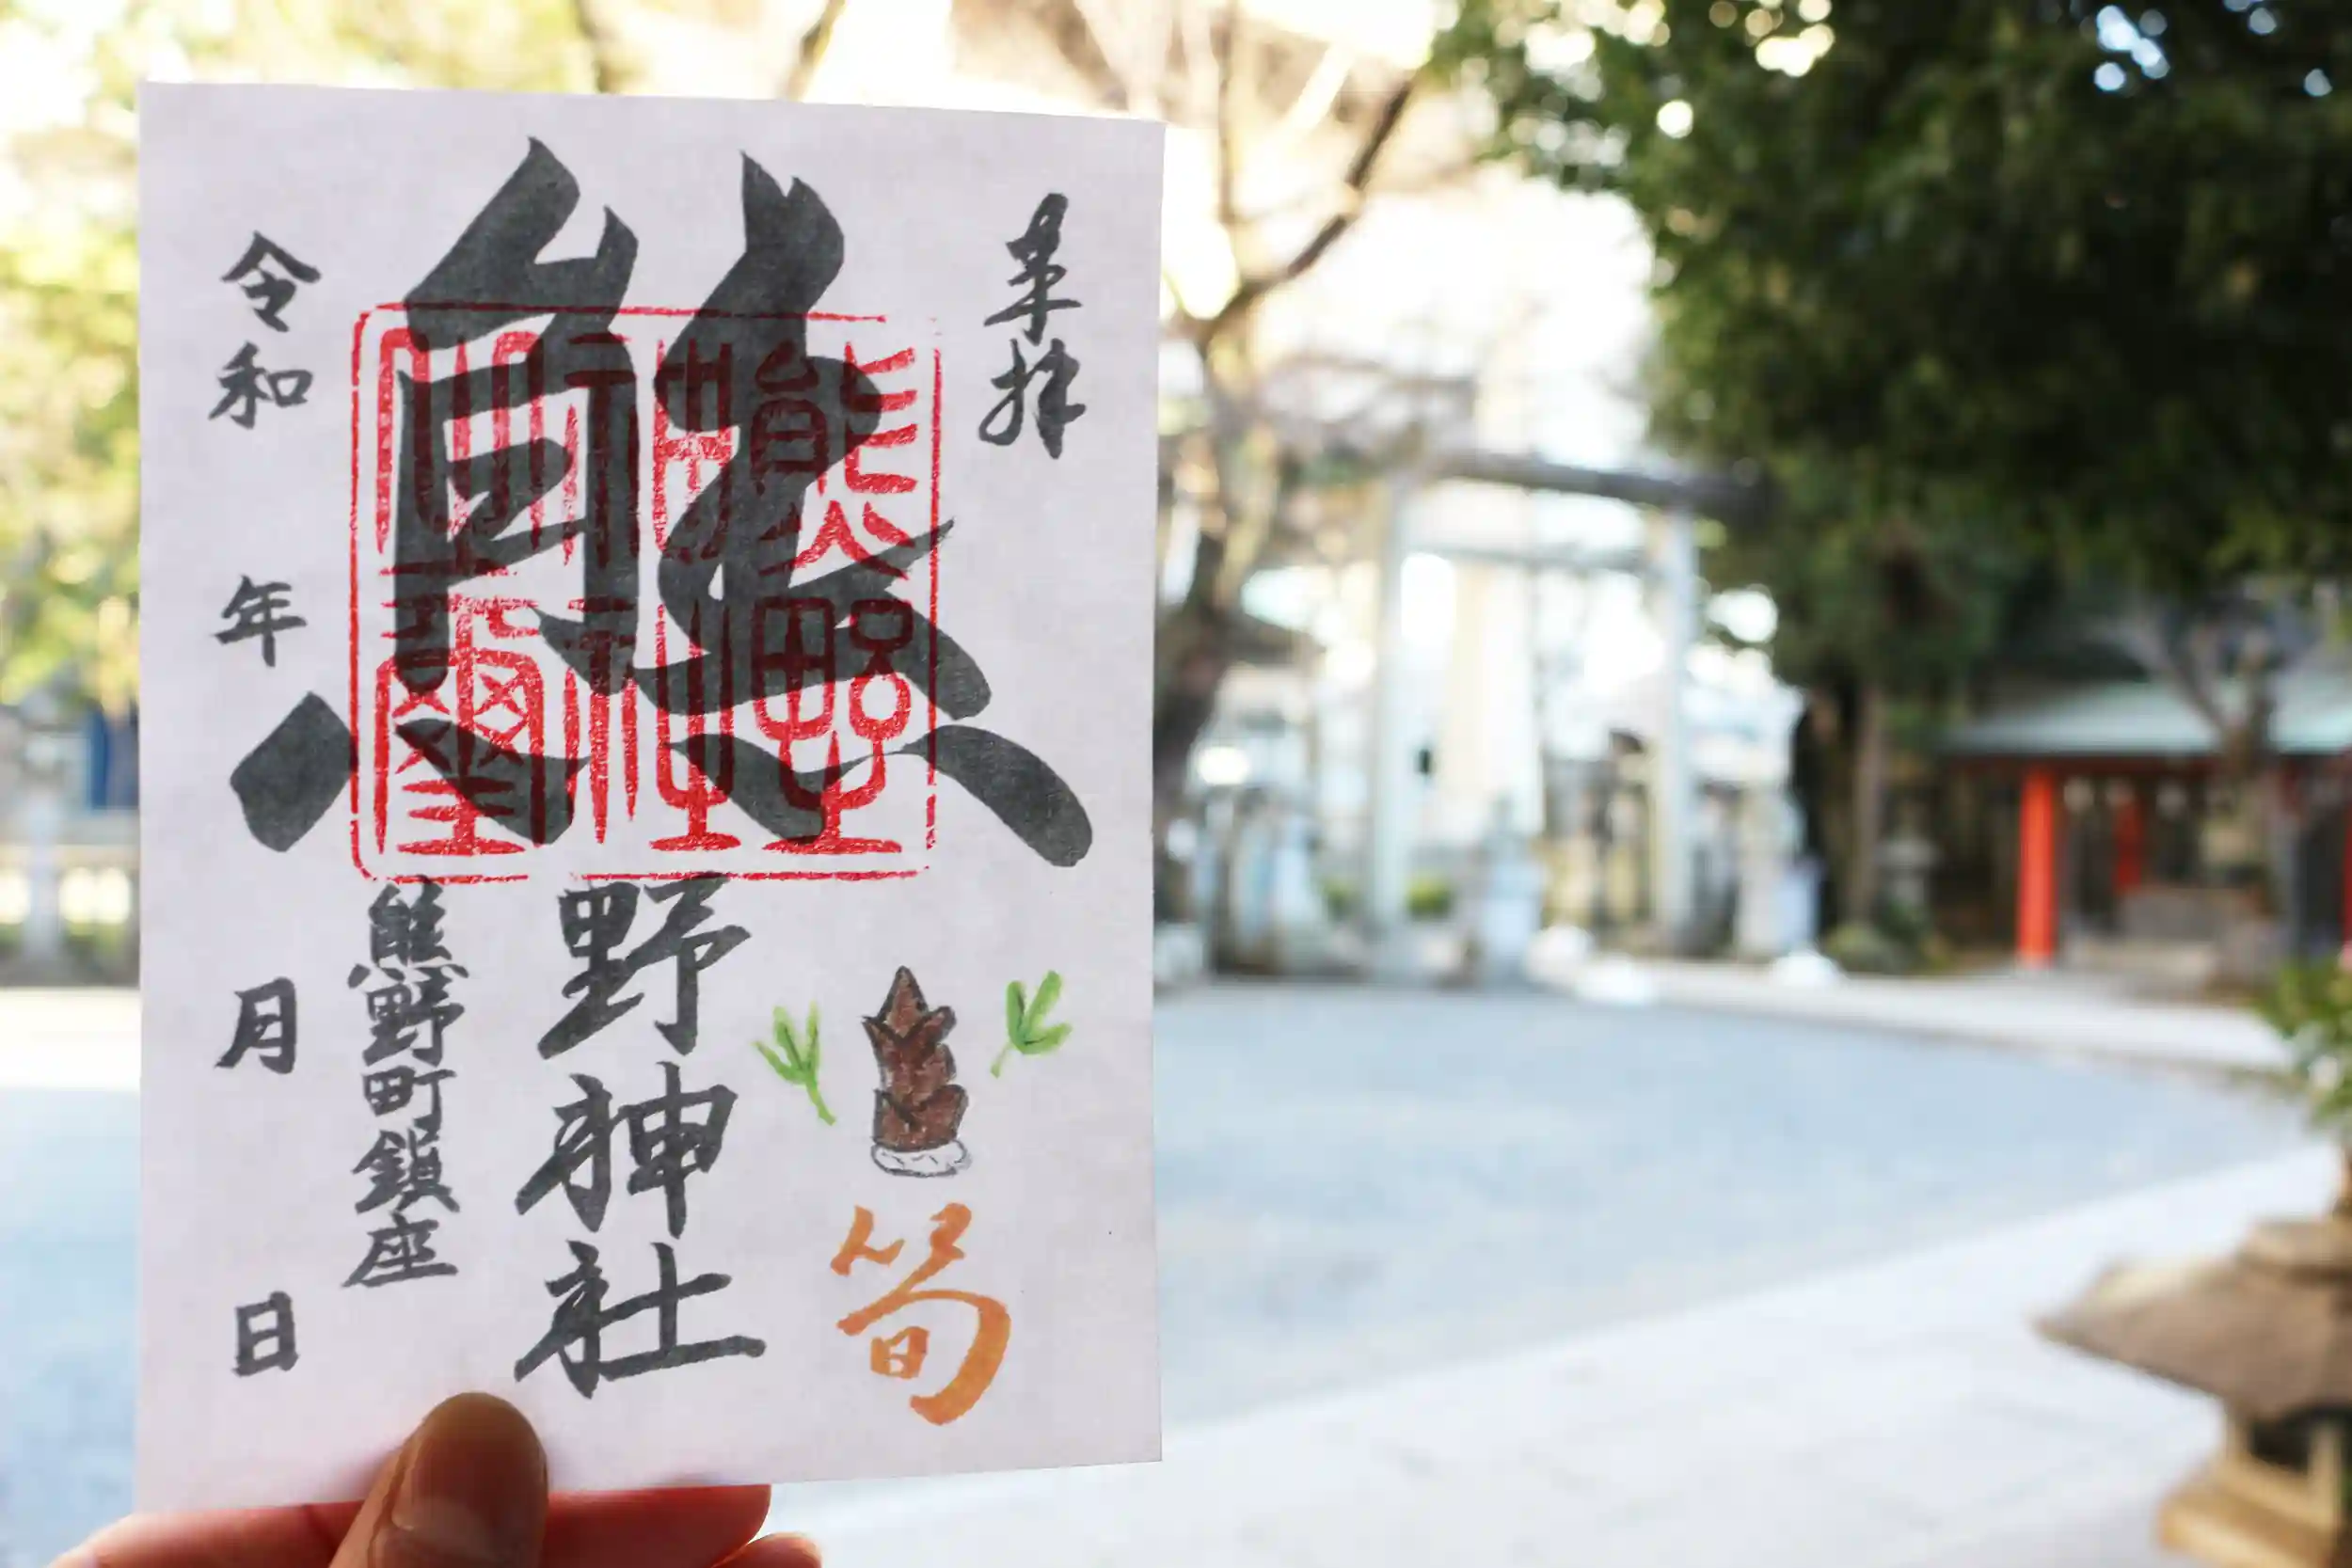 奉拝
筍
熊野神社
熊野神社之璽
熊野町鎮座
令和 年 月 日